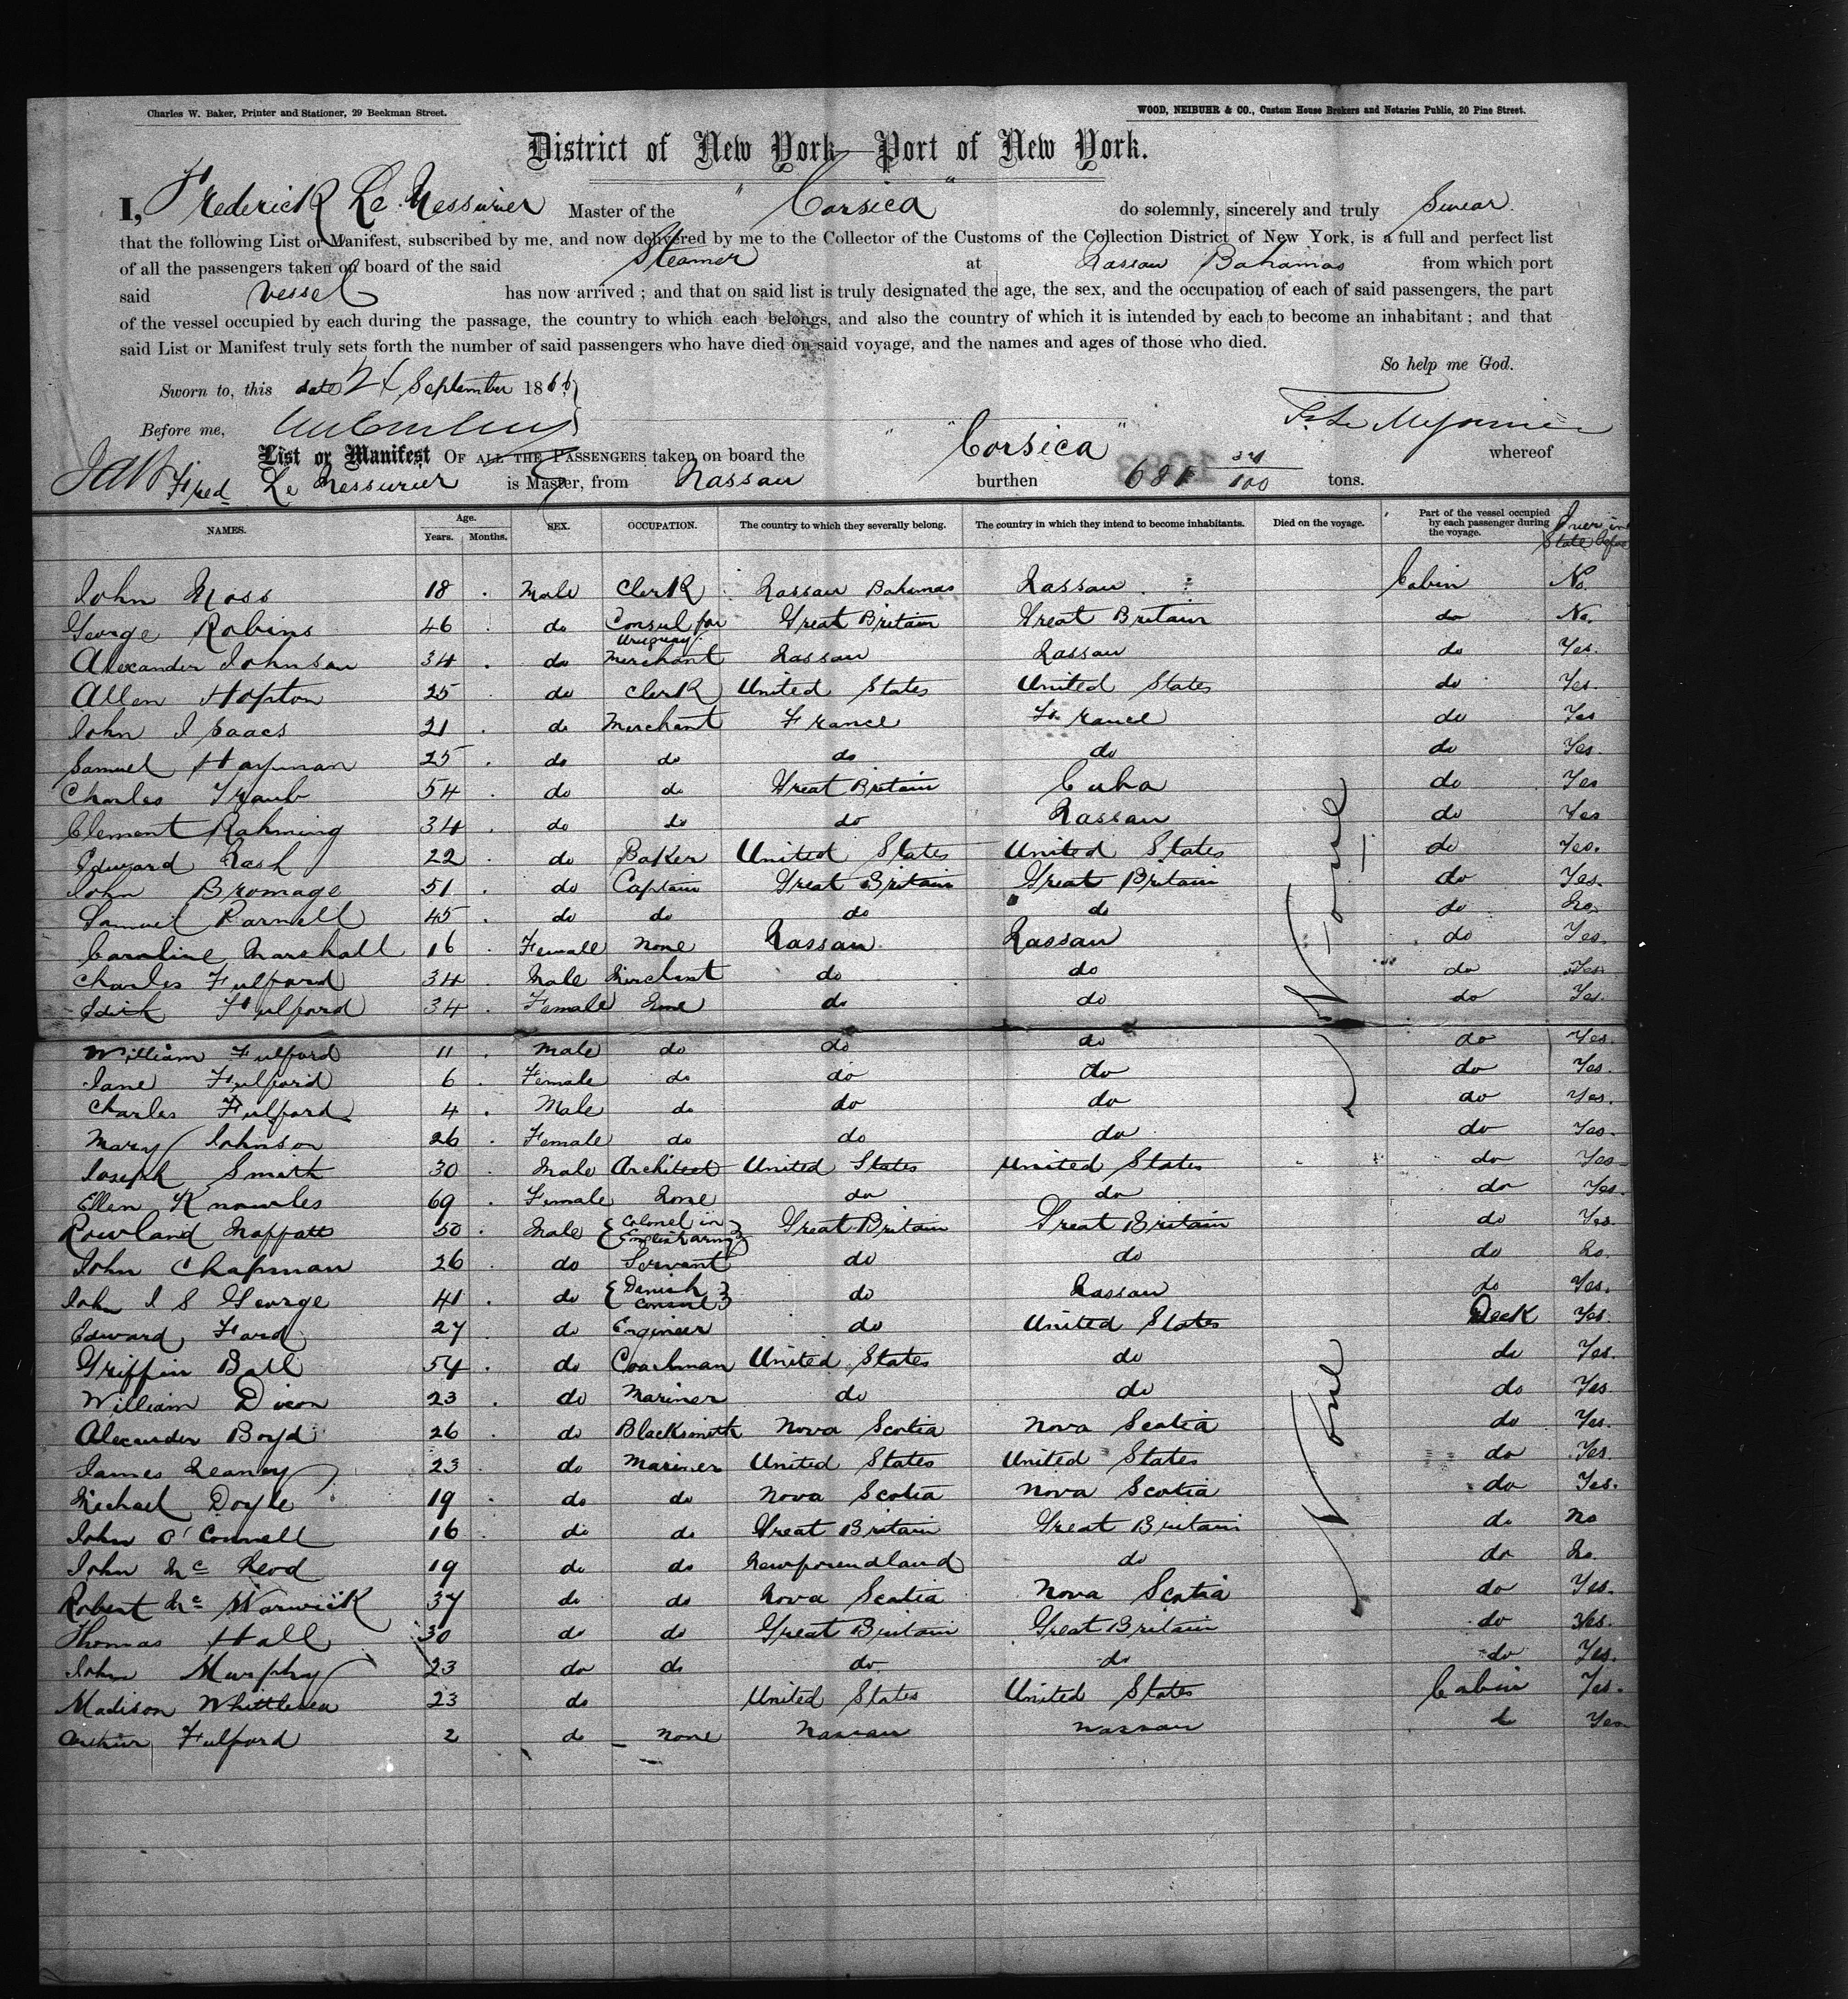 Charles W. Baker, Printer and Stationer, 29 Beekman Street.
WOOD, NEIBUHR & CO., Custom House Brokers and Notaries Public, 20 Pine Street.
District of New York—Port of New York.
I, Frederick Le Messurier Master of the "Corsica" do solemnly, sincerely and truly Swear
that the following List or Manifest, subscribed by me, and now delivered by me to the Collector of the Customs of the Collection District of New York, is a full and perfect list
of all the passengers taken on board of the said Steamer at Nassau Bahamas from which port
said vessel has now arrived; and that on said list is truly designated the age, the sex, and the occupation of each of said passengers, the part
of the vessel occupied by each during the passage, the country to which each belongs, and also the country of which it is intended by each to become an inhabitant; and that
said List or Manifest truly sets forth the number of said passengers who have died on said voyage, and the names and ages of those who died.
So help me God.
Sworn to, this September 1866
Before me,
List or Manifest OF ALL THE PASSENGERS taken on board the "Corsica" whereof
Fred Le Messurier is Master, from Nassau burthen tons.
NAMES. Age. Years. Months. SEX. OCCUPATION. The country to which they severally belong. The country in which they intend to become inhabitants. Died on the voyage. Part of the vessel occupied by each passenger during the voyage.
John Moss 18 Male Clerk Nassau Bahamas Nassau Cabin No.
George Robins 46 do Consul for Uruguay Great Britain Great Britain do No.
Alexander Johnson 34 do Merchant Nassau Nassau do Yes.
Allen Hopton 25 do Clerk United States United States do Yes
John Isaacs 21 do Merchant France France do Yes
Samuel Hayman 25 do do do do do Yes.
Charles Traub 54 do do Great Britain Cuba do Yes
Clement Rahming 34 do do do Nassau do Yes
Edward Nash 22 do Baker United States United States do Yes.
John Bromage 51 do Captain Great Britain Great Britain do Yes.
Samuel Parnell 45 do do do do do No.
Caroline Marshall 16 Female None Nassau Nassau do Yes.
Charles Fulford 34 Male Merchant do do do Yes
Fulford 34 Female None do do do Yes.
William Fulford 11 Male do do do do Yes.
Jane Fulford 6 Female do do do do Yes.
Charles Fulford 4 Male do do do do Yes.
Mary Johnson 26 Female do do do do Yes.
Joseph Smith 30 Male Architect United States United States do Yes
Ellen Knowles 69 Female None do do do Yes.
Rowland Moffatt 50 Male Colonel in English army Great Britain Great Britain do Yes.
John Chapman 26 do Servant do do do No.
John I S George 41 do Danish Consul do Nassau do Yes.
Edward Ford 27 do Engineer do United States Deck Yes.
Griffin Ball 54 do Coachman United States do do Yes.
William Dixon 23 do Mariner do do do Yes
Alexander Boyd 26 do Blacksmith Nova Scotia Nova Scotia do Yes.
James Leaney 23 do Mariner United States United States do Yes.
Michael Doyle 19 do do Nova Scotia Nova Scotia do Yes.
John O'Connell 16 do do Great Britain Great Britain do No
John Mc Leod 19 do do Newfoundland do do No.
Robert Mc Warwick 37 do do Nova Scotia Nova Scotia do Yes.
Thomas Hall 30 do do Great Britain Great Britain do Yes.
John Murphy 23 do do do do do Yes.
Madison Whittlesea 23 do United States United States Cabin Yes.
Arthur Fulford 2 do None Nassau Nassau do Yes
None
None